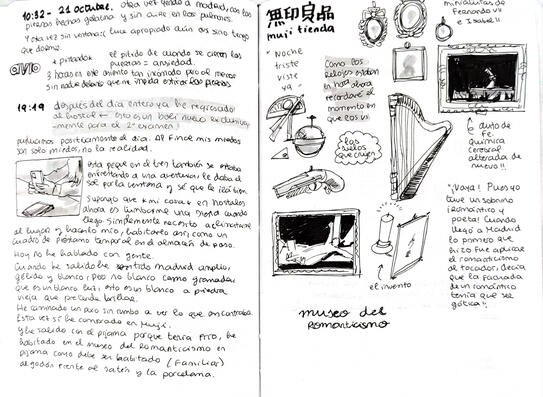 10:32 - 21 octubre, otra vez yendo a madrid, con las
piernas hechas gelatina y sin aire en los pulmones.
que duerme.
+ pintardos
el pitido de cuando se cierran las
puertas = ansiedad.
avlo
3 horas es este asiento tan incómodo pero al menos
sin nadie delante que me impida estirar las piernas
19:49 después del día entero ya he regresado
al hostal
-mente para el 2º examen)
positivamente el día. Al final mis miedos
son solo miedos, no la realidad.
esta peque en el tren también se estaba
enfrentando a una aventura, le daba el
sol por la ventana y sé que le irá bien
Supongo que en hostales
ahora es tumbarme una siesta cuando
llego. Simplemente necesito aclimatarme
al lugar y hacerlo mío, habitarlo así, como un
cuadro de préstamo temporal en el almacén de paso.
Hoy no he hablado con gente.
Cuando he salido he sentido madrid amplio,
gélido y blanco; pero no blanco como granada
que es un blanco luz, esto es un blanco a piedra
vieja que pretende brillar.
He caminado un poco sin rumbo a ver lo que encontraba.
Esta vez sí he comprado en Muji.
Y he salido con el pijama porque tenía frío, he
habitado en el museo del Romanticismo en
pijama como debe ser habitado (Familiar)
algodón frente al satén y la porcelana.
無印良品
muji tienda
* Noche
triste
viste
ya *
Como los
relojes están
en hora ahora
recordaré el
momento en
que los vi
los
suelos
que crujen
el invento
museo del
Romanticismo
miniaturas de
Fernando VII
e Isabel II
auto de
Fe
química
cerebral
alterada de
nuevo!!
"¡Vaya! Pues yo
tuve un sobrino
romántico y
poeta! Cuando
llegó a Madrid
lo primero que
hizo fue aplicar
el romanticismo
al tocador, decía
que la fachada
de un romántico
tenía que ser
gótica".